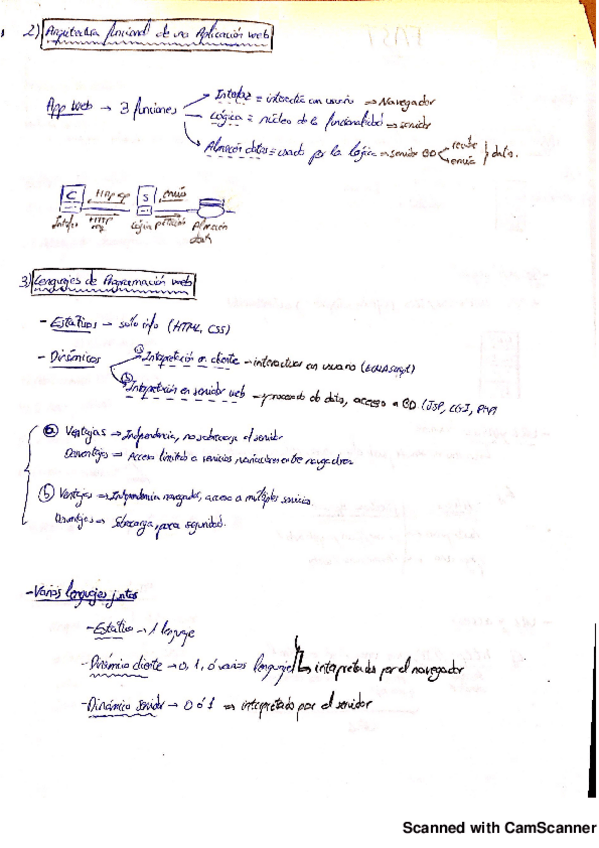 2) Arquitectura funcional de una Aplicación web
App web → 3 funciones
Interfaz = interactúa con usuario ⇒ Navegador
Lógica = núcleo de la funcionalidad ⇒ servidor
Almacén datos = usado por la lógica ⇒ servidor BD
recibe
envía
} datos.
C
HTTP rep
HTTP req
S
envío
petición
Interfaz
Lógica
Almacén
datos
3) Lenguajes de Programación web
- Estáticos → solo info (HTML, CSS)
- Dinámicos
a Interpretación en cliente → interactivos con usuario (ECMAScript)
b Interpretación en servidor web → procesando de datos, acceso a BD (JSP, CGI, PHP)
a Ventajas ⇒ Independencia, no sobrecarga el servidor
Desventajas ⇒ Acceso limitado a servicios, variaciones entre navegadores
b Ventajas ⇒ Independencia navegador, acceso a múltiples servicios.
Desventajas ⇒ Sobrecarga, poca seguridad.
- Varios lenguajes juntos
- Estático → 1 lenguaje
- Dinámico cliente → 0, 1, ó varios lenguajes ↳ interpretado por el navegador
- Dinámico servidor → 0 ó 1 ⇒ interpretado por el servidor
Scanned with CamScanner